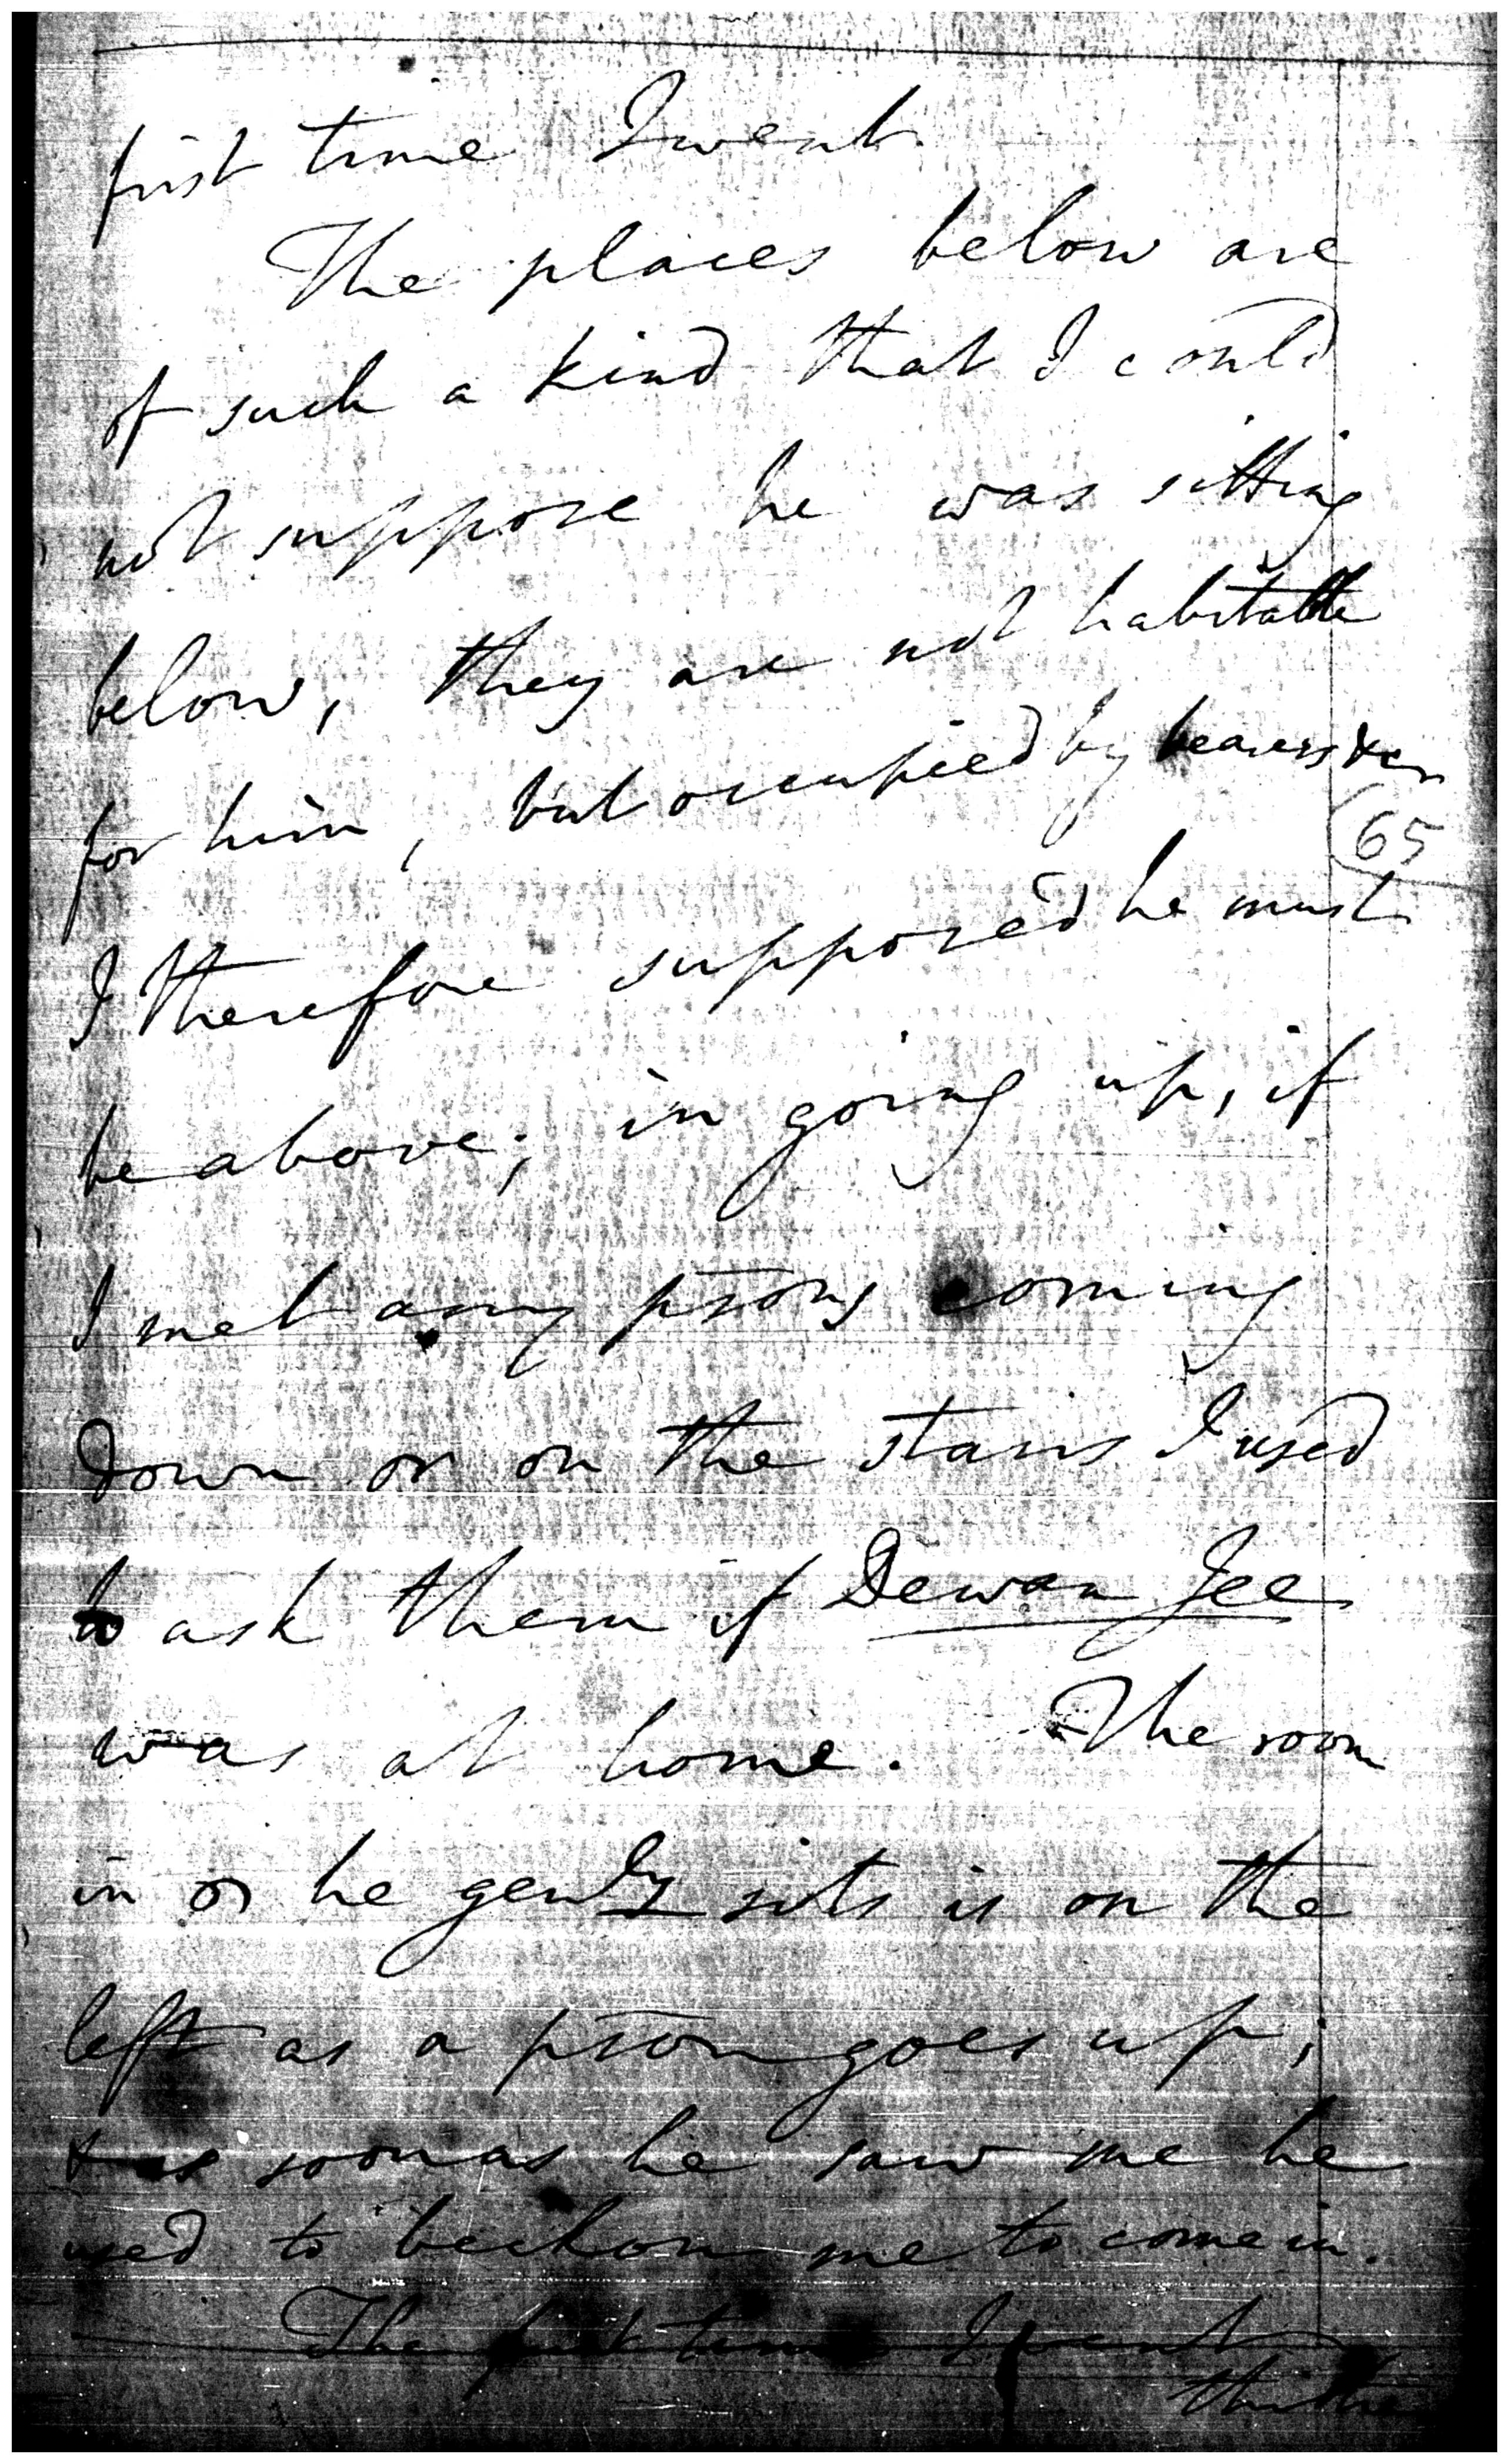 first time I went
The places below are
of such a kind that I could
not suppose he was sitting
below, they are not habitable
for him, but occupied by bearers &c
65
I therefore supposed he must
be above; in going up, if
I met any psons coming
down or on the stairs I used
to ask them if Dewan Jee
was at home. The room
in he genly sits is on the
left as a pson goes up;
& as soon as he saw me he
used to beckon me to come in.
The first time I went